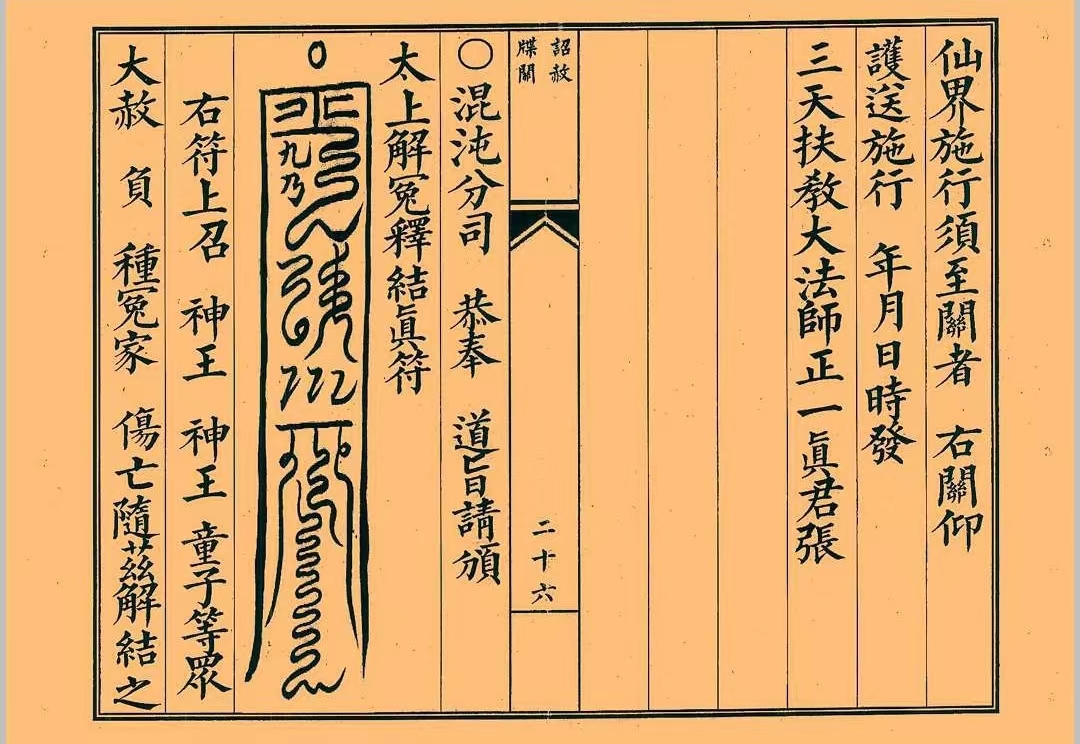 仙界施行須至關者　右關仰
護送施行　年月日時發
三天扶教大法師正一眞君張
詔赦
牒關
二十六
〇混沌分司　恭奉　道旨請頒
太上解冤釋結眞符
九乃
右符上召　神王　神王　童子等眾
大赦　負　種冤家　傷亡隨茲解結之